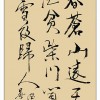 暮蒼山遠天
貧柴門聞
雪夜歸人